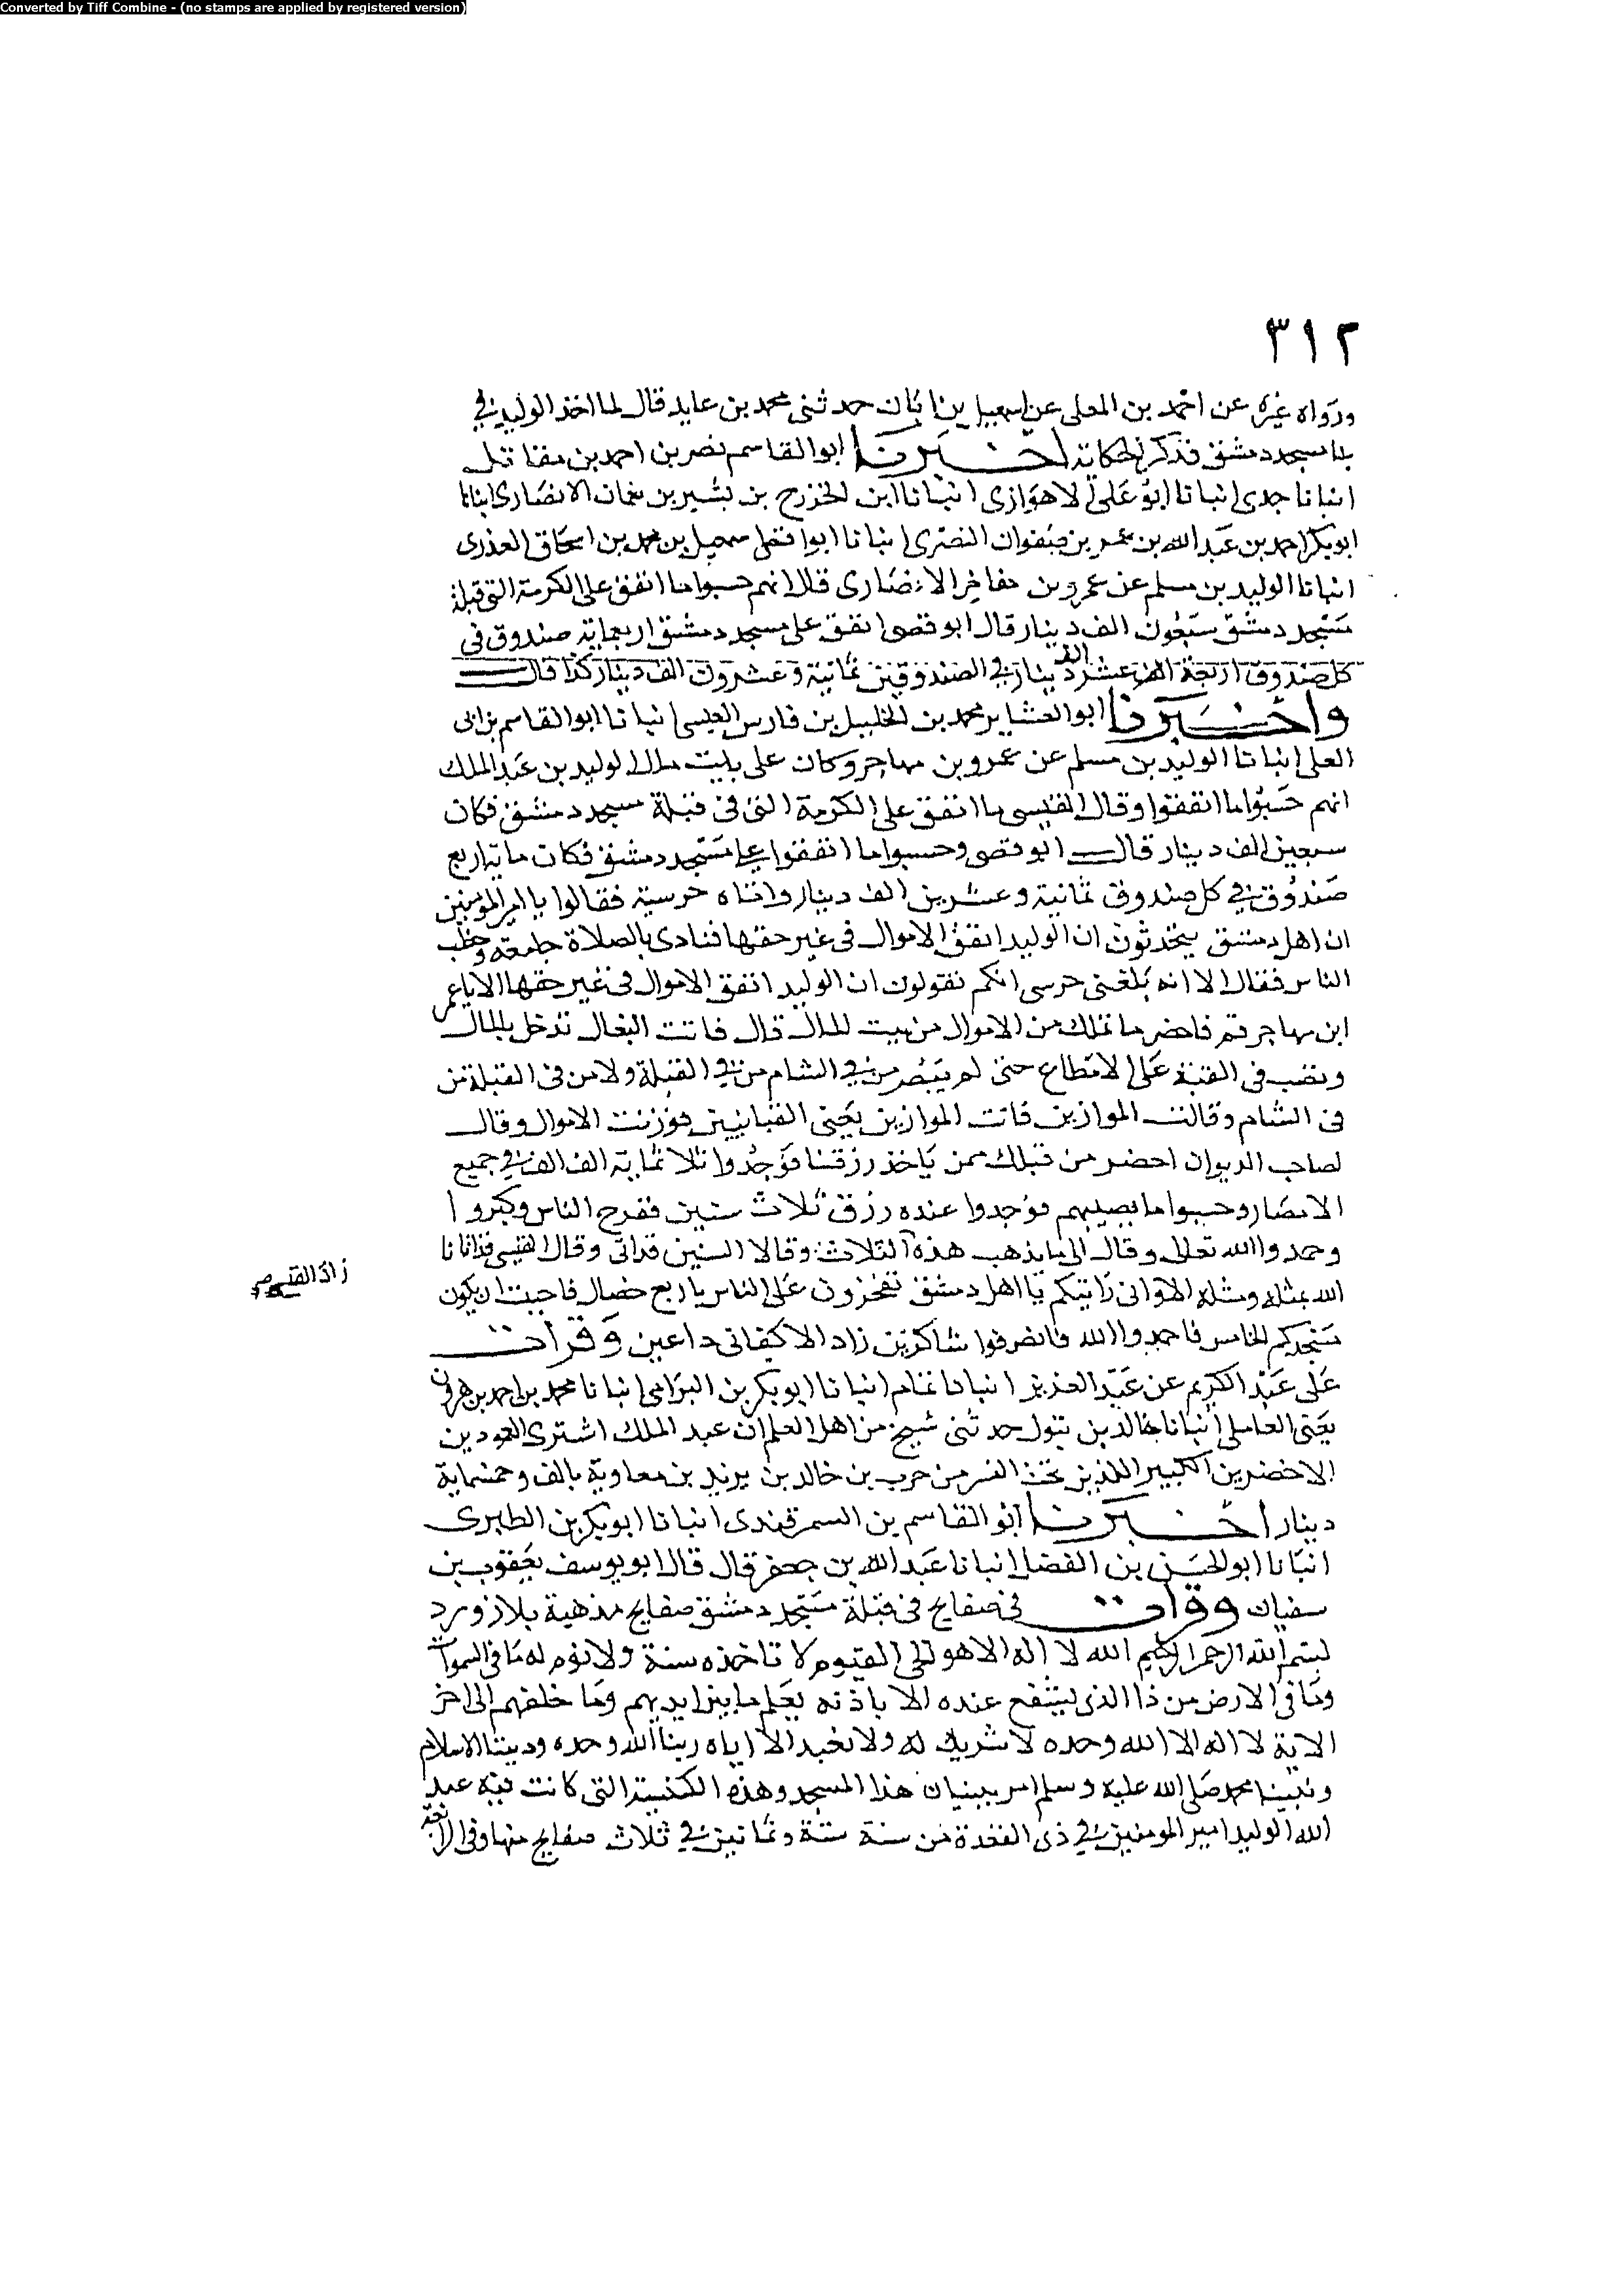 Converted by Tiff Combine - (no stamps are applied by registered version)
٣١٢
ورواه غيره عن احمد بن المعلى عن اسمعيل بن ابان حدثنى محمد بن عايد قال لما اخذ الوليد في
بنا مسجد دمشق فذكر الحكاية اخبرنا ابو القاسم نصر بن احمد بن مقاتل
انبانا جدى انبانا ابو على الاهوازى انبانا ابن الخزرج بن بشير بن نعمان الانصارى انبانا
ابوبكر احمد بن عبد الله بن عمر بن صفوان النصرى انبانا ابوا قصى سمعيل بن محمد بن اسحاق العذرى
انبانا الوليد بن مسلم عن عمرو بن مهاجر الانصارى قال انهم حسبوا ما انفق على الكرمة التى قبلة
مسجد دمشق سبعون الف دينار قال ابو قصى انفق على مسجد دمشق اربعماية صندوق فى
كل صندوق اربعة الف عشر الف دينار في الصندوقين ثمانية وعشرون الف دينار كذا قال
واخبرنا ابو العشاير محمد بن الخليل بن فارس القيسى انبانا ابو القاسم بن ابى
العلى انبانا الوليد بن مسلم عن عمرو بن مهاجر وكان على بليت مال الوليد بن عبد الملك
انهم حسبوا ما انفقوا وقال القيسى ما انفق على الكرمة التى فى قبلة مسجد دمشق فكان
سبعين الف دينار قال ابو قصى وحسبوا ما انفقوا على مسجد دمشق فكان ماية اربع
صندوق في كل صندوق ثمانية وعشرين الف دينار واتاه حرسية فقالوا يا امير المومنين
ان اهل دمشق يتحدثون ان الوليد انفق الاموال فى غير حقها فنادى بالصلاة جامعة وخطب
الناس فقال الا انه بلغنى حرسى انكم تقولون ان الوليد انفق الاموال فى غير حقها الا يا عمر
ابن مهاجر قم فاحضر ما قبلك من الاموال من بيت المال قال فاتت البغال تدخل بالمال
ونصب فى القبة على الانطاع حتى لم يبصر من في الشام من في القبلة ولا من فى القبلة من
فى الشام وقالت الموازين فاتت الموازين يعنى القبانيين فوزنت الاموال وقال
لصاحب الديوان احضر من قبلك ممن ياخذ رزقنا فوجدوا ثلاثماية الف الف في جميع
الامصار وحسبوا ما يصيبهم فوجدوا عنده رزق ثلاث سنين ففرح الناس وكبروا
وحمدوا الله تعالى وقال الى ما يذهب هذه الثلاث وقالا السنين قد اتى وقال القيسى قد اتانا
الله بمثله ومثله الا وانى رايتكم يا اهل دمشق تفخرون على الناس باربع خصال فاحببت ان يكون
زاد القيسى
مسجدكم الخامس فاحمدوا الله فانصرفوا شاكرين زاد الاكفانى داعين وقرات
على عبد الكريم عن عبد العزيز انبانا تمام انبانا ابو بكر بن البرامى انبانا محمد بن احمد بن هرون
يعنى العاملى انبانا خالد بن تبول حدثنى شيخ من اهل العلم ان عبد الملك اشترى العمودين
الاخضرين الكبير اللذين تحت النسر من حرب بن خالد بن يزيد بن معاوية بالف وخمسماية
دينار اخبرنا ابو القاسم بن السمرقندى انبانا ابو بكر بن الطبرى
انبانا ابو الحسن بن الفضل انبانا عبد الله بن جعفر قال قال ابو يوسف يعقوب بن
سفيان وقرات فى صفايح فى قبلة مسجد دمشق صفايح مذهبة بلازورد
بسم الله الرحمن الرحيم الله لا اله الا هو الحى القيوم لا تاخذه سنة ولا نوم له ما فى السموات
وما فى الارض من ذا الذى يشفع عنده الا باذنه يعلم ما بين ايديهم وما خلفهم الى اخر
الاية لا اله الا الله وحده لا شريك له ولا نعبد الا اياه ربنا الله وحده وديننا الاسلام
ونبينا محمد صلى الله عليه وسلم امر ببنيان هذا المسجد وهذه الكنيسة التى كانت فيه عبد
الله الوليد امير المومنين في ذى القعدة من سنة ستة وثمانين في ثلاث صفايح منها وفى الرابعة